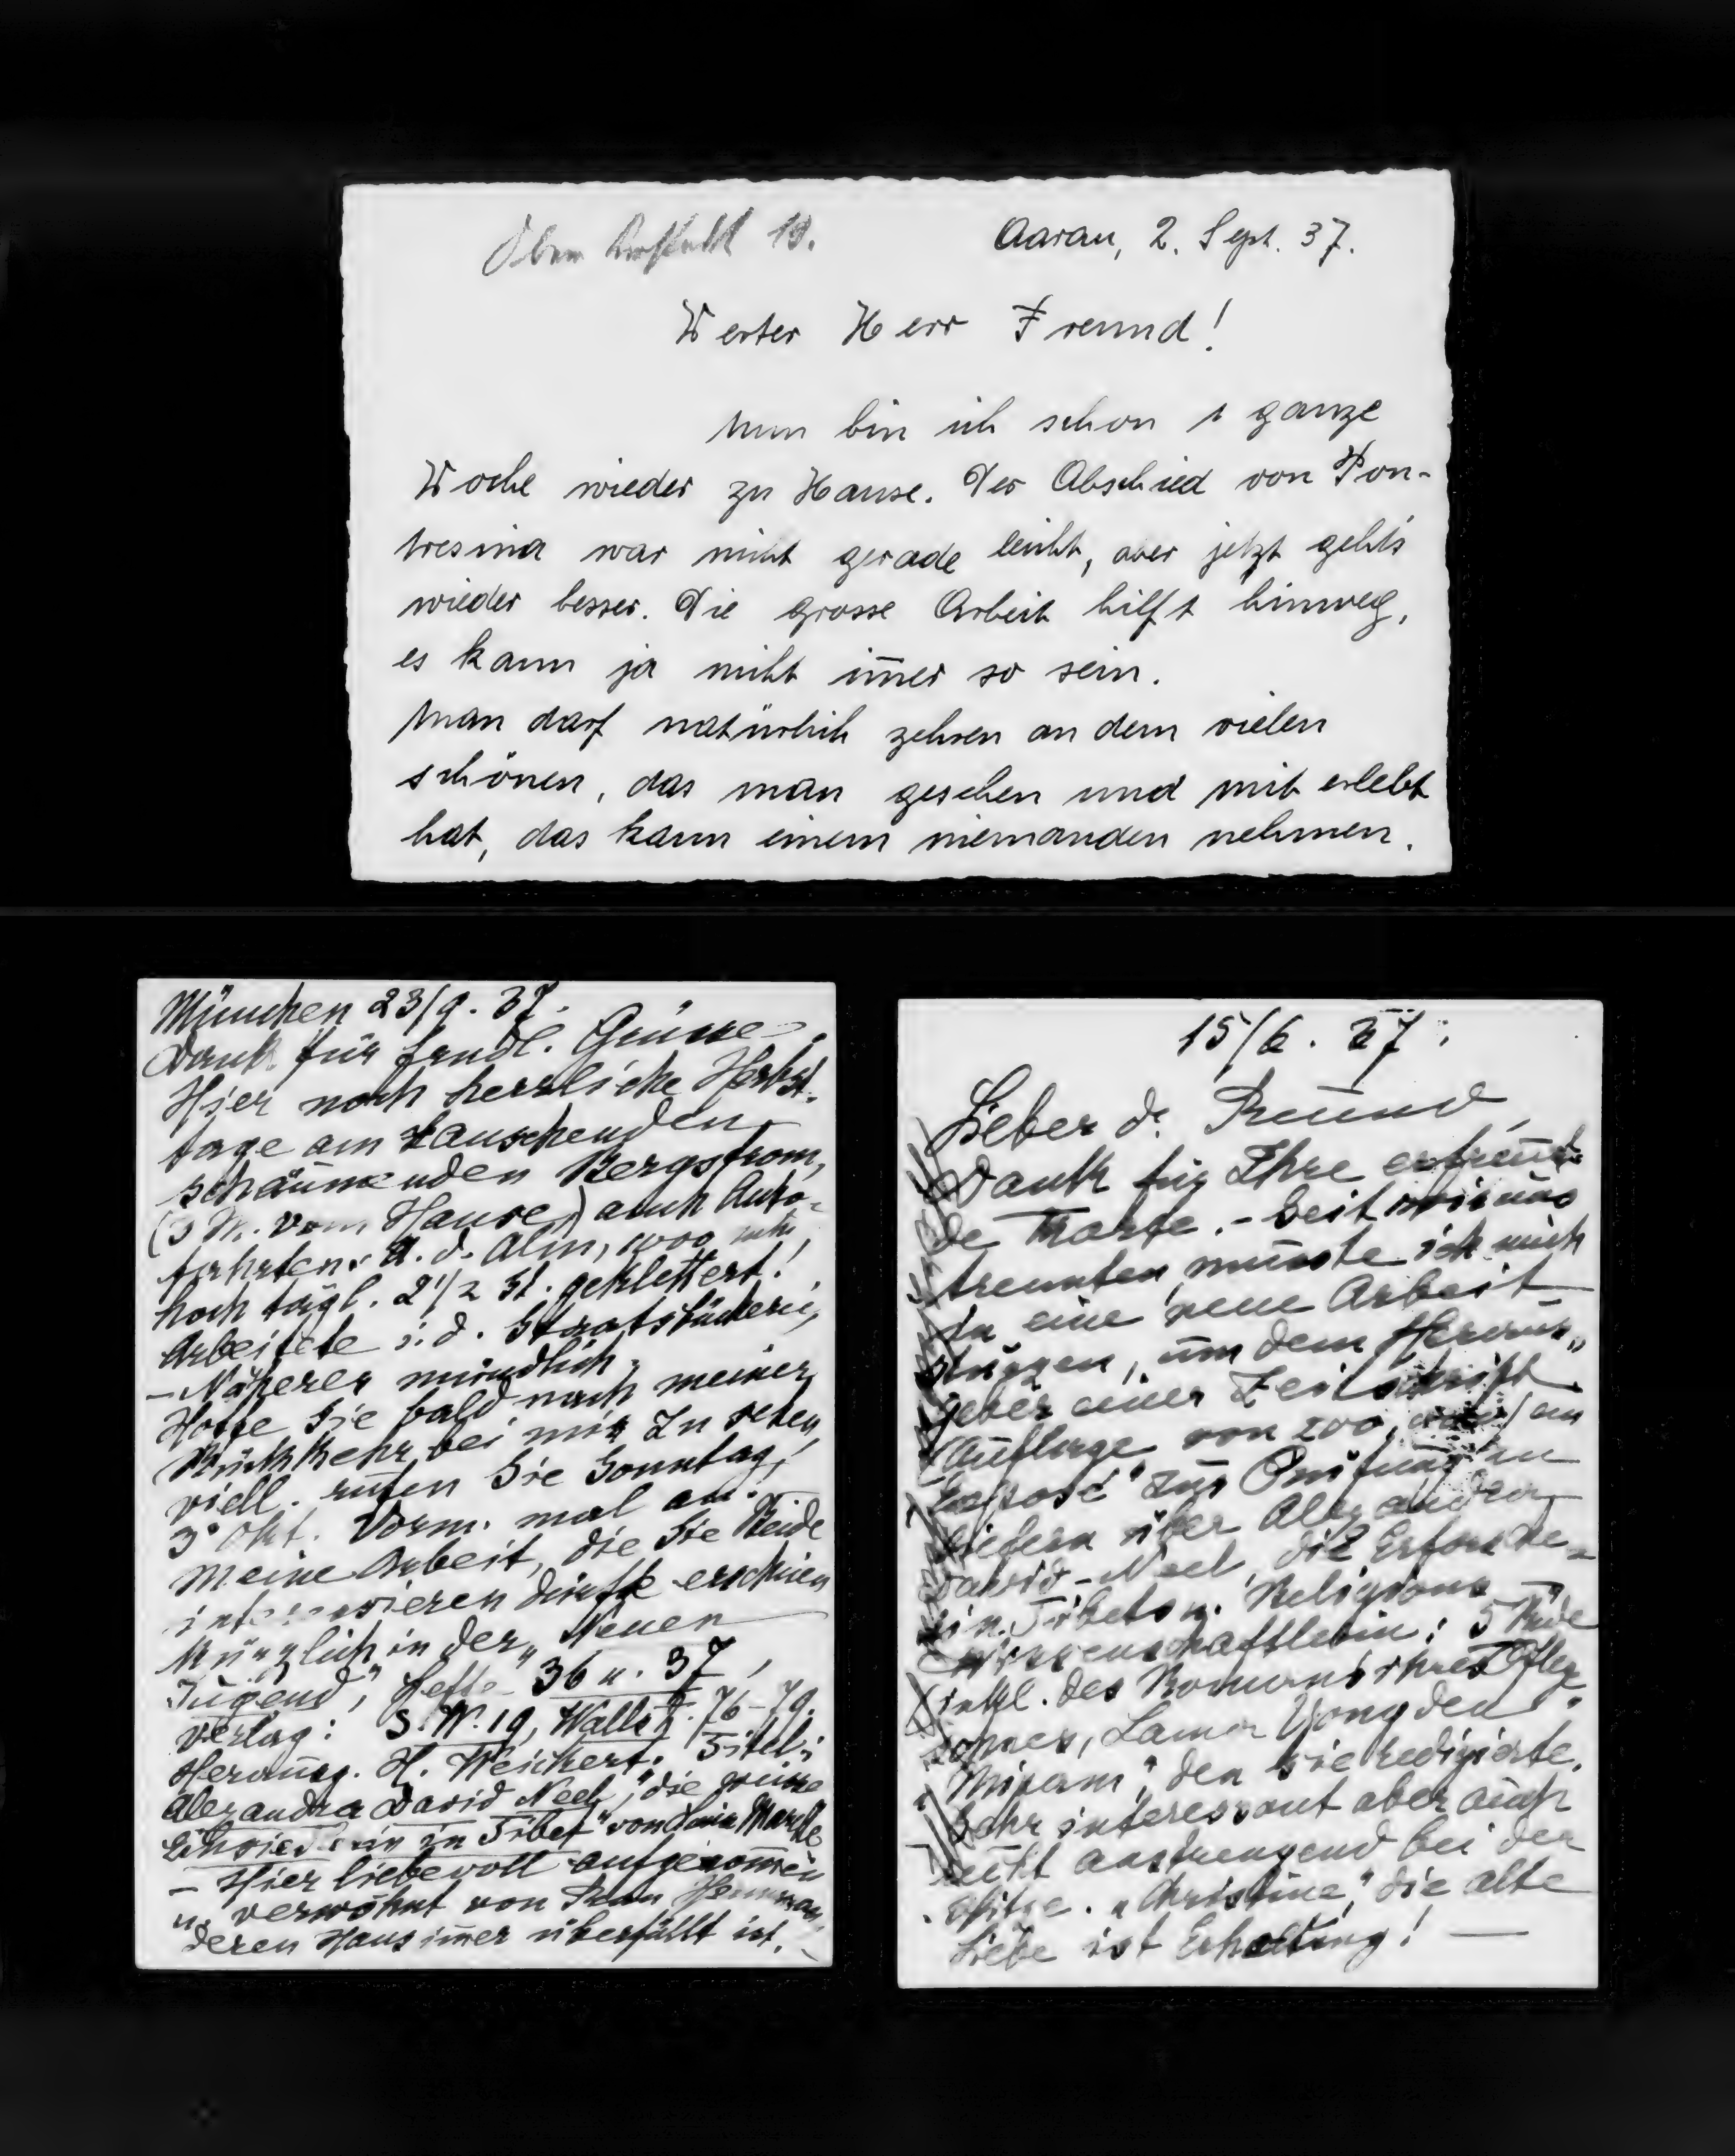 Aarau, 2. Sept. 37.
Werter Herr Freund!
Nun bin ich schon 1 ganze
Woche wieder zu Hause. Der Abschied von Pon-
tresina war nicht gerade leicht, aber jetzt geht's
wieder besser. Die grosse Arbeit hilft hinweg,
es kann ja nicht im̄er so sein.
Man darf natürlich zehren an dem vielen
schönen, das man gesehen und mit erlebt
hat, das kann einem niemanden nehmen.
München 23/9. 37.
Dank für frndl. Grüsse.
Hier noch herrliche Herbst-
tage am rauschenden,
schäumenden Bergstrom,
(3 M. vom Hause) auch Auto-
fahrten. A. d. Alm, 1000
hoch tägl. 2 1/2 St. geklettert!
Arbeitete i. d. Staatsbücherei,
– Näheres mündlich,
Hoffe Sie bald nach meiner
Rückkehr bei mir zu sehen,
viell. rufen Sie Sonntag,
3. Okt. Vorm. mal an. –
Meine Arbeit, die Sie Beide
interessieren dürfte erschien
kürzlich in der „Neuen
Jugend", Hefte 36 u. 37,
Verlag: S.W. 19, Wallstr. 76-79.
Herausg. H. Weichert. Titel:
Alexandra David Neel, "die weisse
in Tibet" von
– Hier liebevoll aufgenom̄en
u. verwöhnt von Frau
deren Haus im̄er überfüllt ist.
15/6. 37.
Lieber d. Freund,
Dank für Ihre erfreuen-
de Karte. – Seit wir uns
trennten, musste ich mich
in eine neue Arbeit
stürzen, um dem Heraus-
geber einer Zeitschrift
(Auflage von 200, ein
"Exposé" zur Prüfung zu
liefern über Alexandra
David-Neel, die Erforsche-
rin Tibets u. Religions-
wissenschaftlerin: 5 Bde
inkl. des Romans ihres Pfleg-
sohnes, Lama Yongden
"Mipam", den sie redigierte.
Sehr interessant aber auch
recht anstrengend bei der
Hitze. „Christine", die alte
Liebe ist Erholung! –